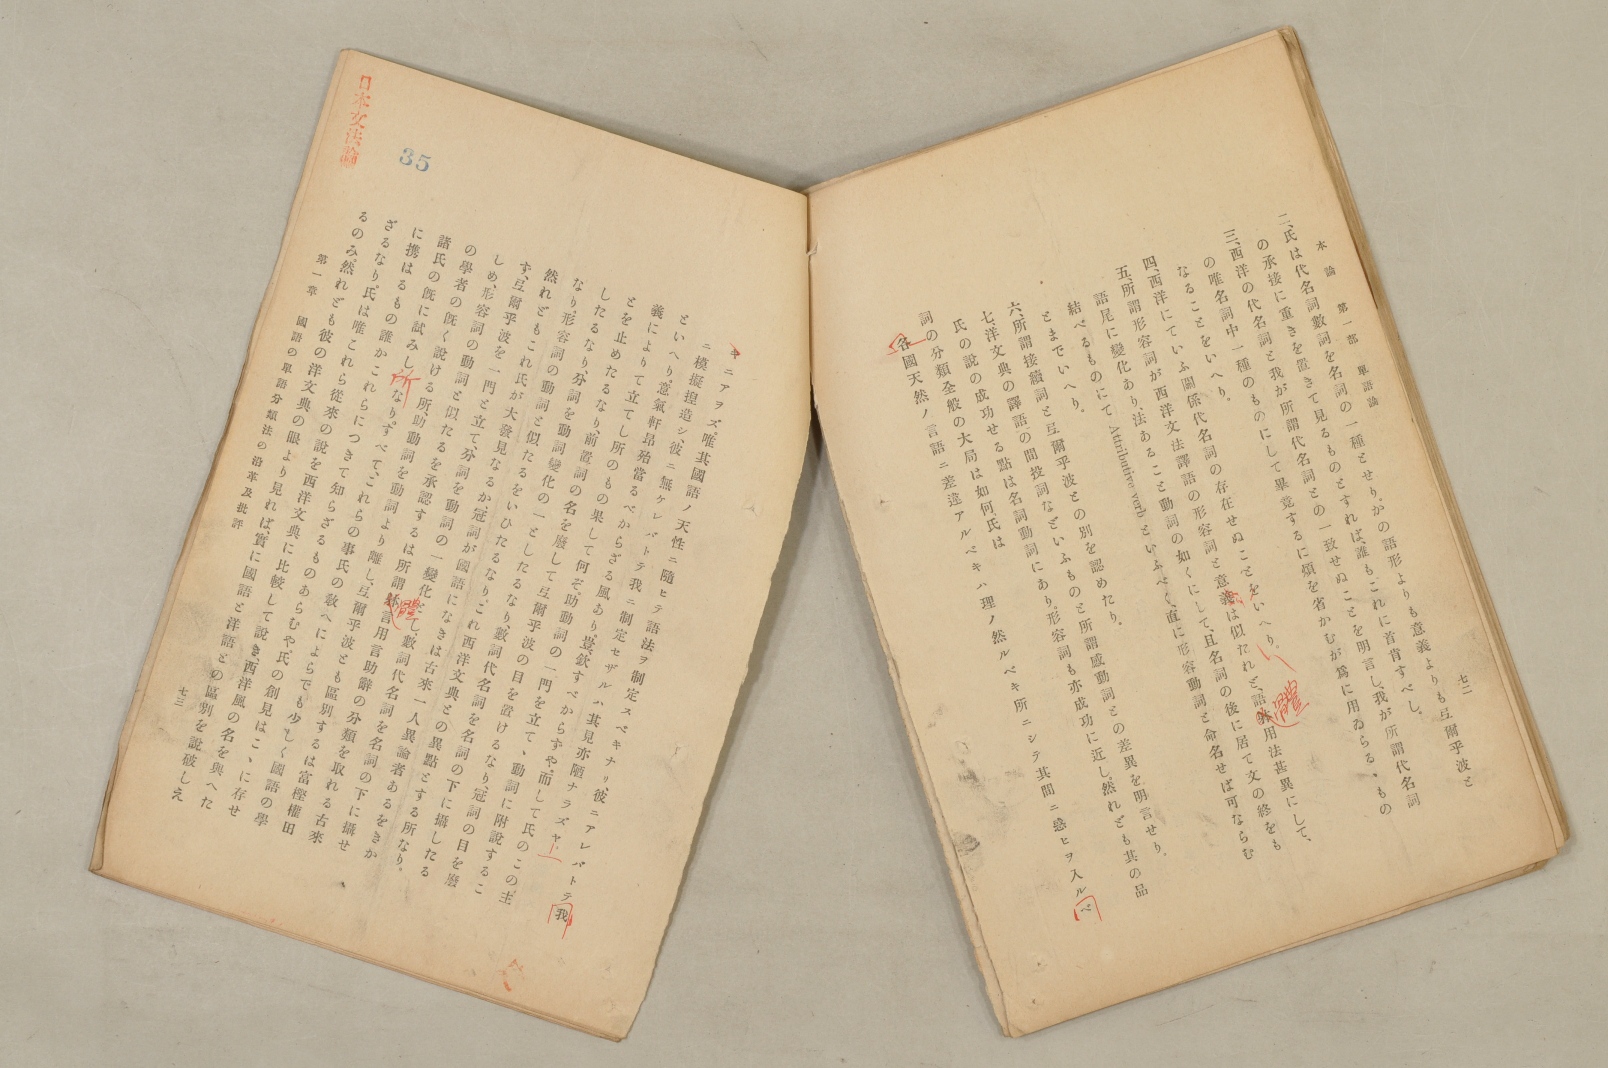 本論　第一部　單語論
七二
二、氏は代名詞數詞を名詞の一種とせり。かの語形よりも意義よりも弖爾乎波と
の承接に重きを置きて見るものとすれば、誰もこれに首肯すべし。
三、西洋の代名詞と我が所謂代名詞との一致せぬことを明言し、我が所謂代名詞
の唯名詞中一種のものにして畢竟するに煩を省かむが爲に用ゐらるゝもの
なることをいへり。
四、西洋にていふ關係代名詞の存在せぬことをいへり。
五、所謂形容詞が西洋文法譯語の形容詞と意義は似たれど、語 用法甚異にして、
語尾に變化あり、法あること動詞の如くにして、且名詞の後に居て文の終をも
結べるものにて Attributive verb といふべく、直に形容動詞と命名せば可ならむ
とまでいへり。
六、所謂接續詞と弖爾乎波との別を認めたり。
七、洋文典の譯語の間投詞などいふものと所謂感動詞との差異を明言せり。
氏の說の成功せる點は名詞動詞にあり、形容詞も亦成功に近し。然れども其の品
詞の分類全般の大局は如何、氏は
各國天然ノ言語ニ差違アルベキハ理ノ然ルベキ所ニシテ其間ニ惑ヒヲ入ルベ
體
キニアラズ。唯其國語ノ天性ニ隨ヒテ語法ヲ制定スベキナリ、彼ニアレバトテ我
ニ模擬揑造シ、彼ニ無ケレバトテ我ニ制定セザルハ其見亦陋ナラズヤ
といへり。意氣軒昂殆當るべからざる風あり、豈欽すべからずや。而して氏のこの主
義によりて立てし所のもの果して何ぞ。助動詞の一門を立てゝ動詞に附說するこ
とを止めたるなり、前置詞の名を廢して弖爾乎波の目を置けるなり、冠詞の目を廢
したるなり、分詞を動詞變化の一としたるなり、數詞代名詞を名詞の下に攝したる
なり、形容詞の動詞と似たるをいひたるなり、これ西洋文典との異點とする所なり。
然れどもこれ氏が大發見なるか、冠詞が國語になきは古來一人異論者あるをきか
ず、弖爾乎波を一門と立て、分詞を動詞の一變化とし、數詞代名詞を名詞の下に攝せ
しめ、形容詞の動詞と似たるを承認するは所謂 言用言助辭の分類を取れる古來
の學者の旣く說ける所、助動詞を動詞より離し、弖爾乎波とも區別するは富樫權田
諸氏の旣に試みし なり。すべて、これらの事氏の敎へによらでも少しく國語の學
に携はるもの誰かこれらにつきて知らざるものあらむや。氏の創見はこゝに存せ
ざるなり。氏は唯これら從來の說を西洋文典に比較して說き、西洋風の名を與へた
るのみ。然れども彼の洋文典の眼より見れば、實に國語と洋語との區別を說破しえ
所
體
第一章　國語の單語分類法の沿革及批評
七三
35
日本文法論